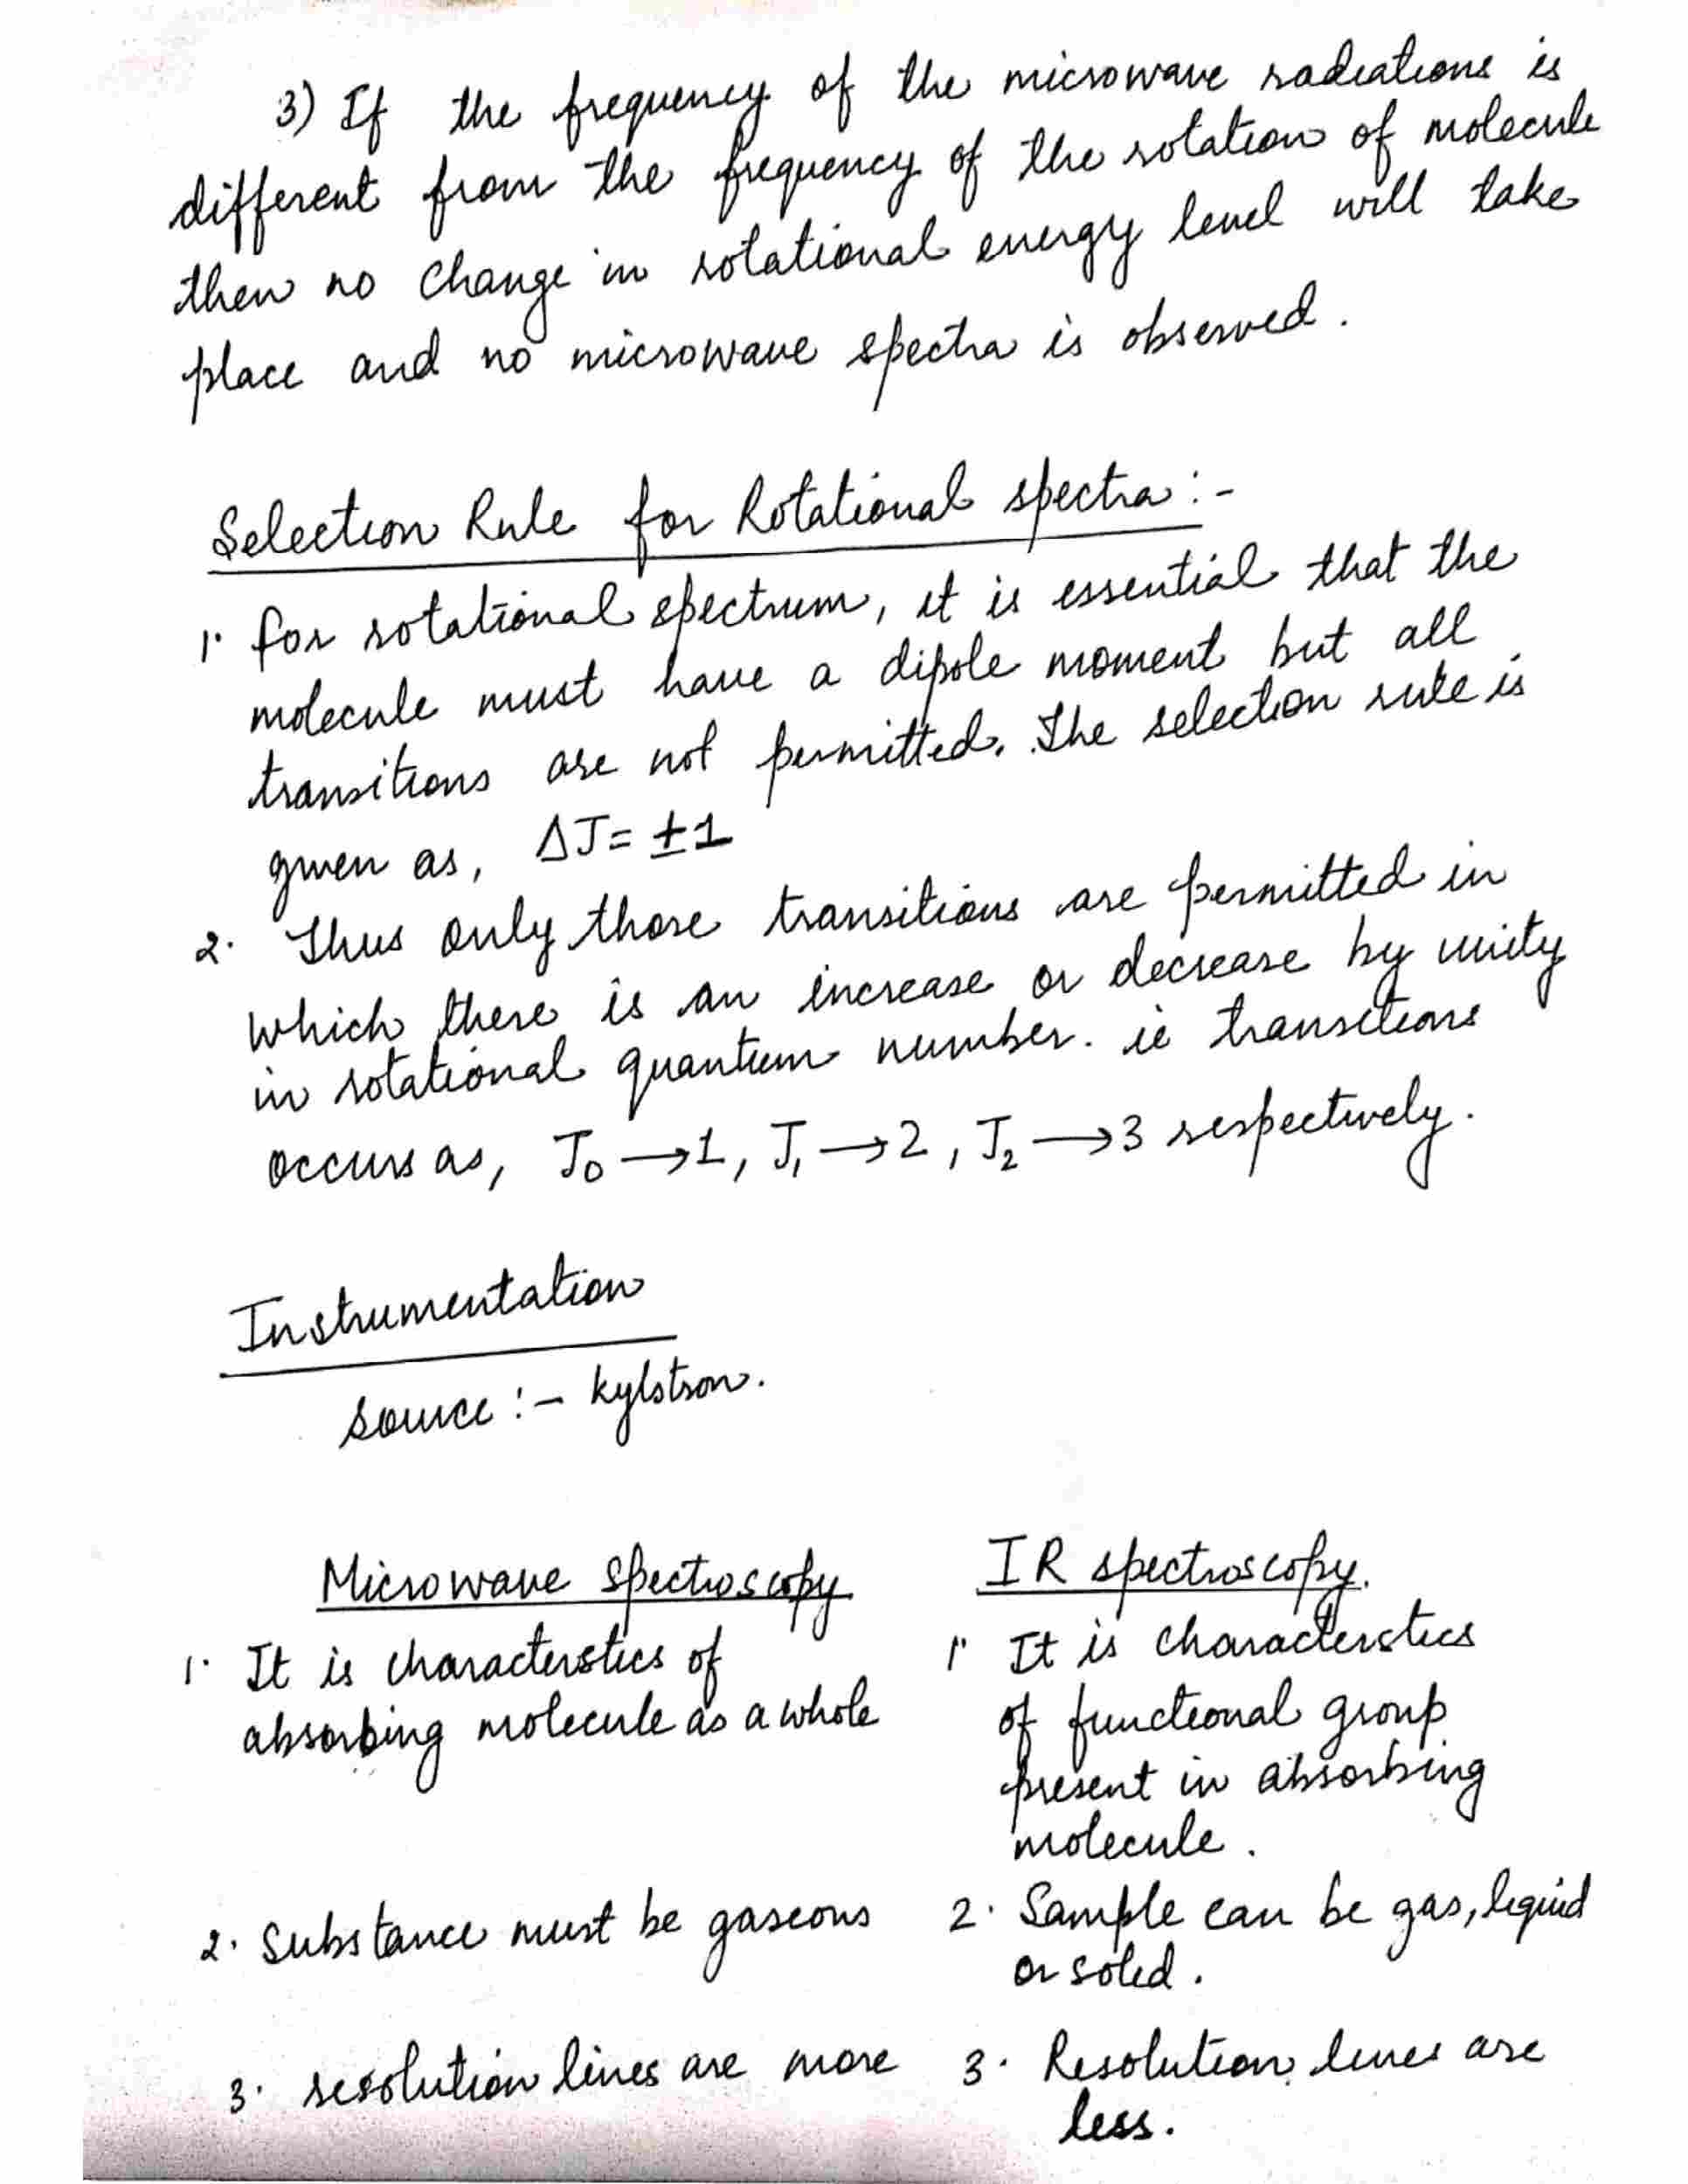 3) If the frequency of the microwave radiations is
different from the frequency of the rotation of molecule
then no change in rotational energy level will take
place and no microwave spectra is observed.
Selection Rule for Rotational spectra :-
1. for rotational spectrum, it is essential that the
molecule must have a dipole moment but all
transitions are not permitted. The selection rule is
given as, ΔJ= ±1
2. Thus only those transitions are permitted in
which there is an increase or decrease by unity
in rotational quantum number. ie transitions
occurs as, J₀ → 1, J₁ → 2, J₂ → 3 respectively.
Instrumentation
source :- kylstron.
Microwave spectroscopy
1. It is characterstics of
absorbing molecule as a whole
2. Substance must be gaseous
3. resolution lines are more
IR spectroscopy.
1. It is characterstics
of functional group
present in absorbing
molecule.
2. Sample can be gas, liquid
or solid.
3. Resolution lines are
less.